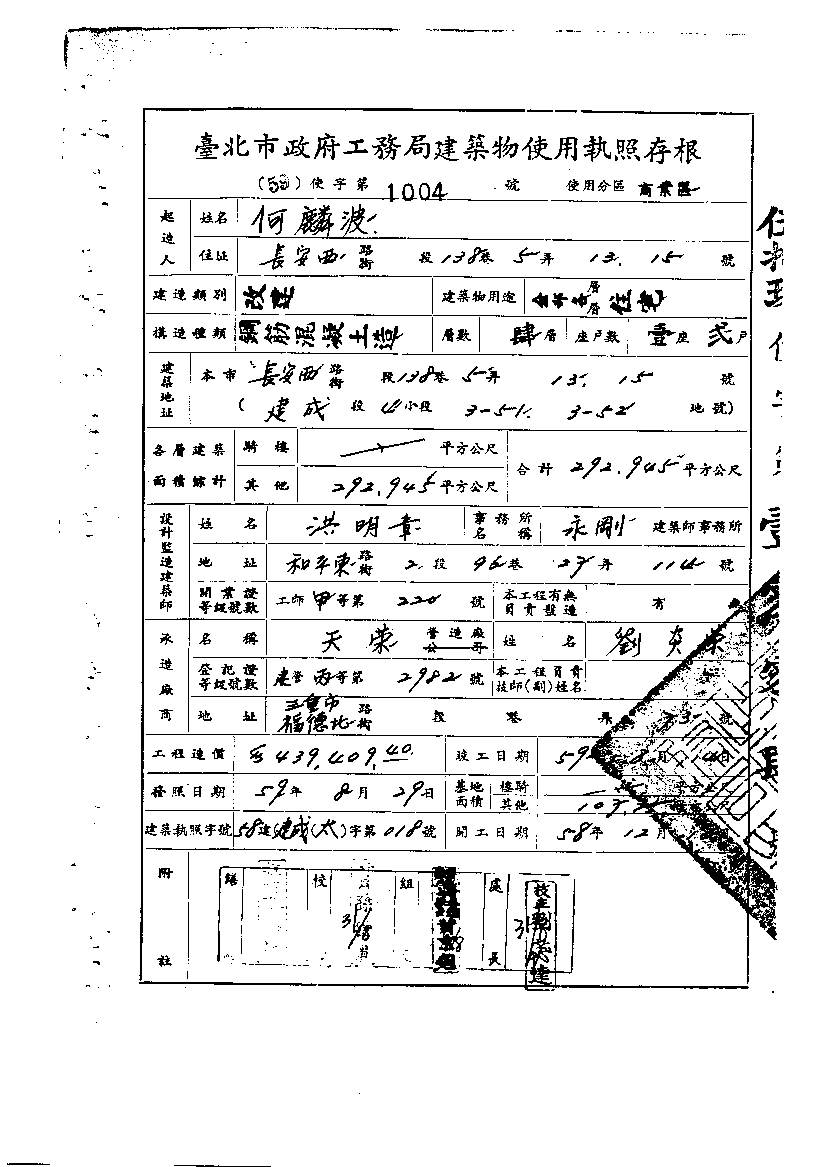 臺北市政府工務局建築物使用執照存根
(59)使字第 1004 號 使用分區 商業區
起造人 姓名 何麟波
住址 長安西路街 段138巷 5弄 13. 15 號
建造類別 改建 建築物用途 層層 住宅
構造種類 鋼筋混凝土造 層數 肆層 座戶數 壹座 弍戶
建築地址 本市 長安西路街 段138巷 5弄 13. 15 號
(建成 段 四小段 3-51. 3-52 地號)
各層建築面積綜計 騎樓 平方公尺 合計 292.945平方公尺
其他 292.945平方公尺
設計監造建築師 姓名 洪明章 事務所名稱 永剛 建築師事務所
地址 和平東路街 2段 96巷 27弄 114 號
開業證等級號數 工師甲等第 220 號 本工程有無負責監造 有
承造廠商 名稱 天榮 營造廠公司 姓名 劉炎榮
登記證等級號數 建營丙等第 2982 號 本工程負責技師(副)姓名
地址 三重市福德北路街 段 巷 弄 號
工程造價 439,409.40 竣工日期 59 月 日
發照日期 59年 8月 29日 基地面積 樓騎 平方公尺
其他 103. 平方公尺
建築執照字號 58建建成(太)字第018號 開工日期 58年 12月
附註 繕 校 組 處長